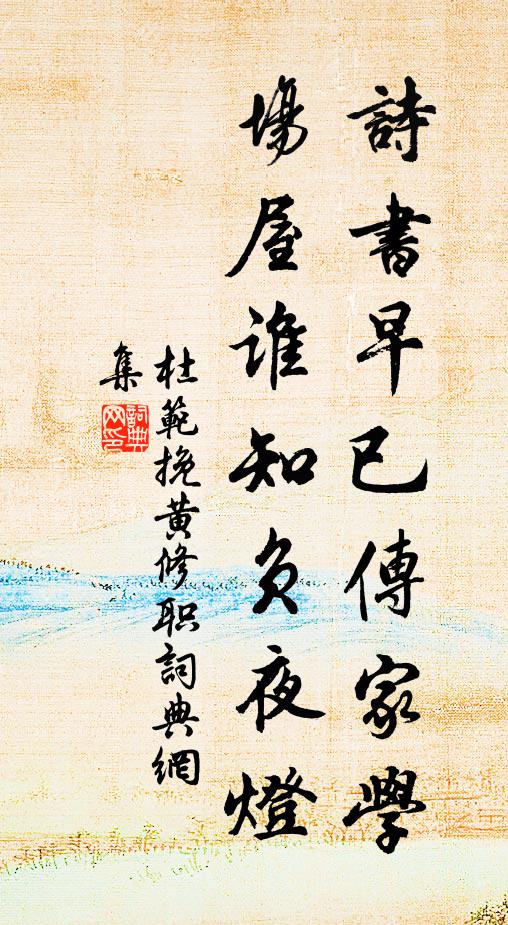 詩書早已傳家學
場屋誰知負夜燈
杜範挽黃修职詞典網
集
詞典網印